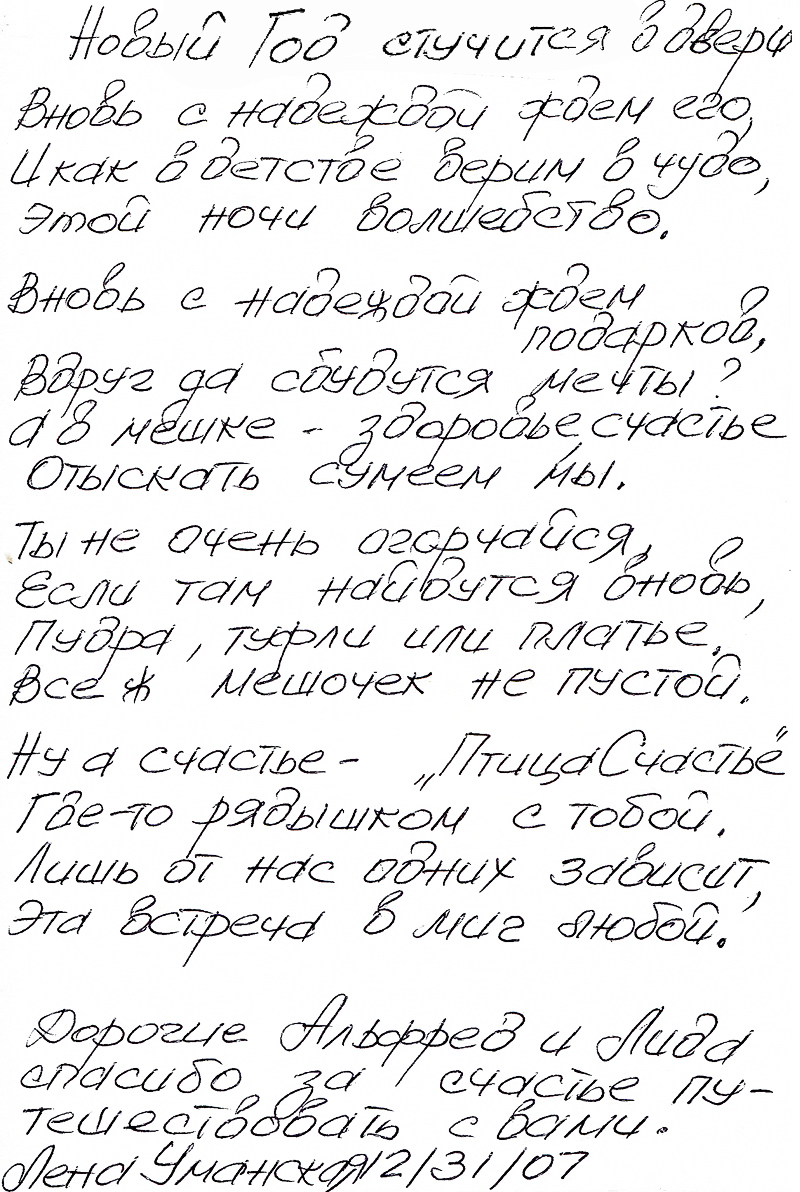 Новый Год стучится в двери
Вновь с надеждой ждем его,
И как в детстве верим в чудо,
Этой ночи волшебство.
Вновь с надеждой ждем
подарков,
Вдруг да сбудутся мечты?
а в мешке - здоровье, счастье
Отыскать сумеем мы.
Ты не очень огорчайся,
Если там найдутся вновь,
Пудра, туфли или платье.
Все ж мешочек не пустой.
Ну а счастье - „Птица Счастье"
Где-то рядышком с тобой.
Лишь от нас одних зависит,
Эта встреча в миг любой.
Дорогие Альфред и Лида
спасибо за счастье пу-
тешествовать с вами.
Лена Уманская 12/31/07